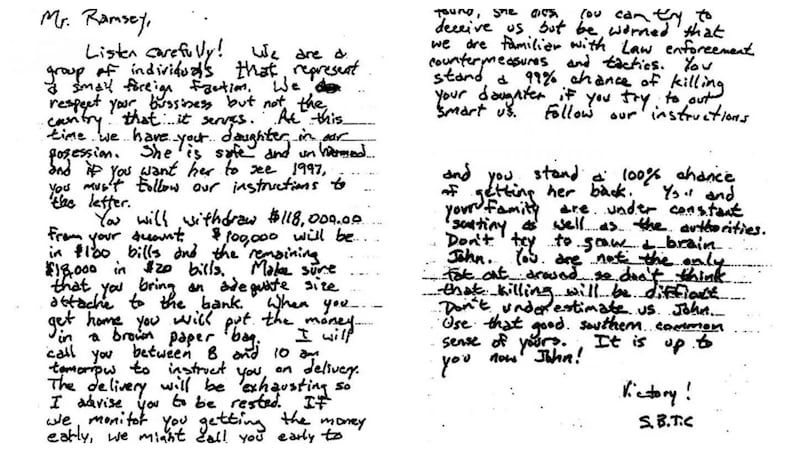 Mr. Ramsey,
Listen carefully! We are a
group of individuals that represent
a small foreign faction. We
respect your bussiness but not the
country that it serves. At this
time we have your daughter in our
posession. She is safe and unharmed
and if you want her to see 1997,
you must follow our instructions to
the letter.
You will withdraw $118,000.00
from your account. $100,000 will be
in $100 bills and the remaining
$18,000 in $20 bills. Make sure
that you bring an adequate size
attache to the bank. When you
get home you will put the money
in a brown paper bag. I will
call you between 8 and 10 am
tomorrow to instruct you on delivery.
The delivery will be exhausting so
I advise you to be rested. If
we monitor you getting the money
early, we might call you early to
found, she dies. You can try to
deceive us but be warned that
we are familiar with Law enforcement
countermeasures and tactics. You
stand a 99% chance of killing
your daughter if you try to out
smart us. Follow our instructions
and you stand a 100% chance
of getting her back. You and
your family are under constant
scrutiny as well as the authorities.
Don't try to grow a brain
John. You are not the only
fat cat around so don't think
that killing will be difficult.
Don't underestimate us John.
Use that good southern common
sense of yours. It is up to
you now John!
Victory!
S.B.T.C